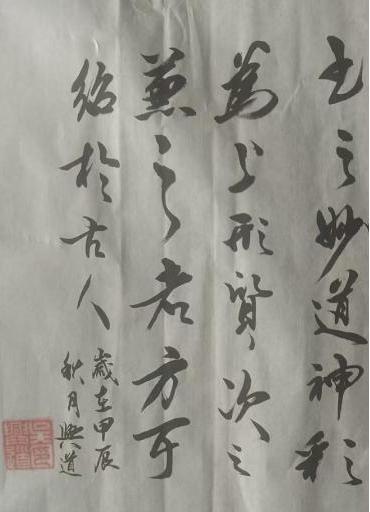 书之妙道神彩
为上形質次之
兼之者方可
绍於古人
歲在甲辰
秋月興道